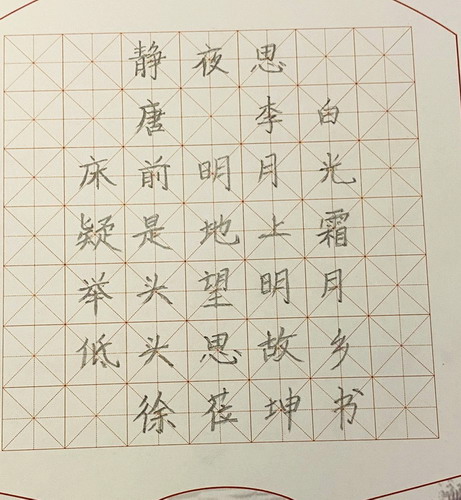 静夜思
唐 李白
床前明月光
疑是地上霜
举头望明月
低头思故乡
徐莅坤书